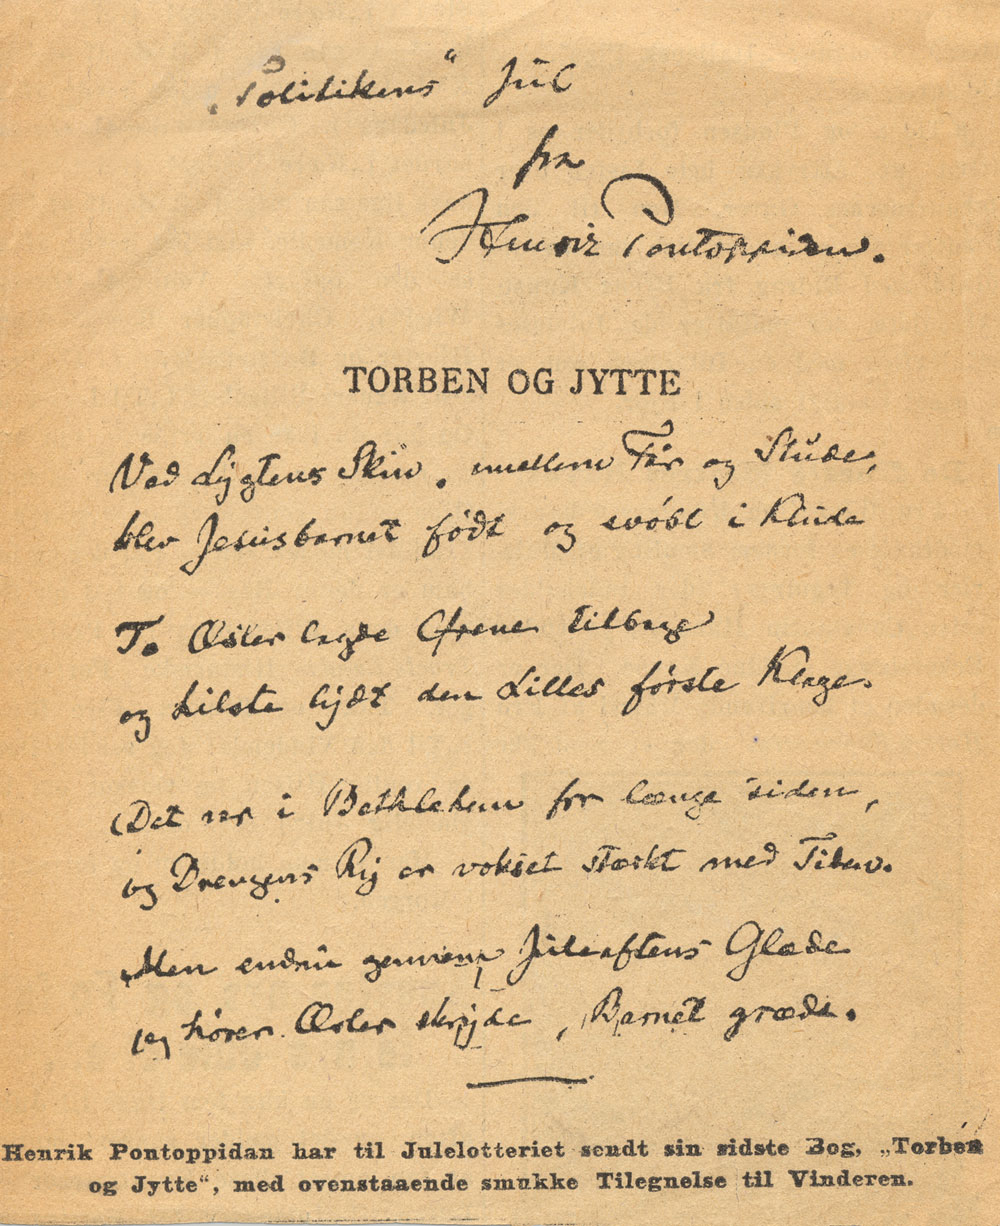 „Politikens“ Jul
fra
Henrik Pontoppidan.
TORBEN OG JYTTE
Ved Lygtens Skin, mellem Får og Stude,
blev Jesusbarnet født og svøbt i Klude
To Æsler lagde Ørene tilbage
og hilste lydt den Lilles første Klage.
Det var i Bethlehem for længe siden,
og Drengens Ry er vokset stærkt med Tiden.
Men endnu gennem Juleaftens Glæde
jeg hører Æsler skryde, Barnet græde.
Henrik Pontoppidan har til Julelotteriet sendt sin sidste Bog, „Torben
og Jytte“, med ovenstaaende smukke Tilegnelse til Vinderen.